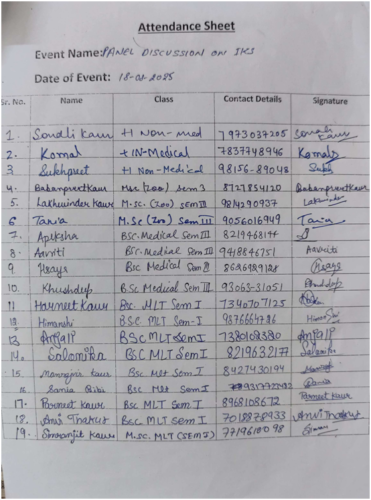 Attendance Sheet
Event Name: PANEL DISCUSSION ON IKS
Date of Event: 18-01-2025
Sr. No. Name Class Contact Details Signature
1. Sonali Kaur +1 Non-med 7973037205 Sonali Kaur
2. Komal +1 N-Medical 7837748946 Komal
3. Sukhpreet +1 Non-Medical 98156-89048
4. Babanpreet Kaur Msc (Zoo) sem 3 8727854120 Babanpreet Kaur
5. Lakhwinder Kaur M.Sc. (Zoo) sem III 9814290937 Lakhwinder
6 Tania M.Sc (Zoo) sem III 9056016949 Tania
7. Apiksha BSc. Medical Sem III 8219468144
8. Aarviti BSc. Medical Sem III 9418846751 Aarviti
9 BSc Medical Sem 8626989128
10. Khushdeep BSc Medical Sem III 93063-31051
11 Harneet Kaur Bsc. MLT Sem I 7340707125
12 Himanshi BSC MLT Sem-I 9876664786
13 Anjali BSC MLT Sem I 7380108380 Anjali
14. Salonika BSC MLT Sem I 8219632177 Salonika
15. Kaur Bsc MLT Sem I 8427430194
16 Sania Bibi Bsc MLT Sem I Sania
17. Parneet Kaur BSC MLT Sem I 8968108672 Parneet Kaur
18. Anvi Thakur Bsc MLT Sem I 7018878933 Anvi Thakur
19. Simranjit Kaur M.Sc. MLT (SEM I) 7719610098